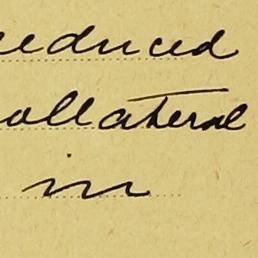 reduced
collateral
in